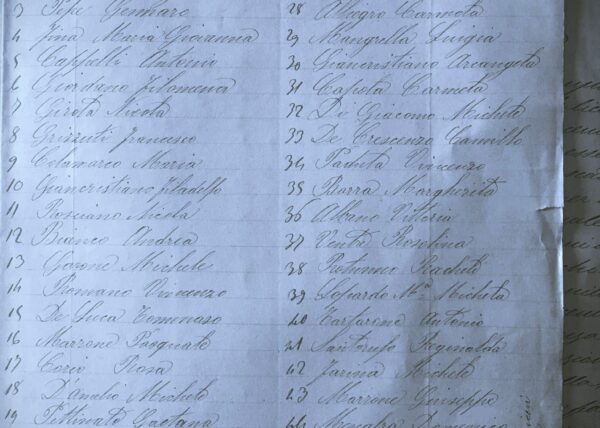 3 Pepe Gennaro
4 Fina Maria Giovanna
5 Cappelli Antonio
6 Giordano Filomena
7 Girota Nicola
8 Grizzuti Francesco
9 Colamarco Maria
10 Giancristiano Filadelfo
11 Rosciano Nicola
12 Bianco Andrea
13 Garone Michele
14 Romano Vincenzo
15 De Luca Tommaso
16 Marrone Pasquale
17 Corio Rosa
18 D'analio Michele
19 Pettinato Gaetana
28 Allegro Carmela
29 Mangrella Luigia
30 Giancristiano Arcangela
31 Capota Carmela
32 Di Giacomo Michele
33 De Crescenzo Camillo
34 Vincenzo
35 Barra Margherita
36 Albano Vittoria
37 Ventre Rosolina
38 Rachele
39 Lopardo Mª Michela
40 Antonio
41 Reginalda
42 Farina Michele
43 Marrone Giuseppe
44 Domenico